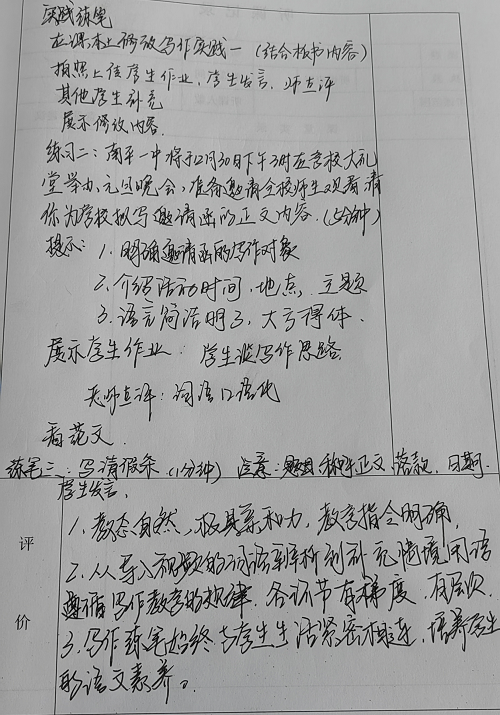 实践练笔
在课本上修改写作实践一（结合板书内容）
拍照上传学生作业，学生发言，师点评
其他学生补充
展示修改内容
练习二：南平一中将于12月30日下午3时在学校大礼
堂举办元旦晚会，准备邀请全校师生观看，请
你为学校拟写邀请函的正文内容.（5分钟）
提示： 1. 明确邀请函的写作对象
2. 介绍活动时间、地点、主题
3. 语言简洁明了，大方得体.
展示学生作业： 学生谈写作思路.
老师点评：词语口语化
看范文.
练笔三：写请假条.（1分钟） 注意：题目 称呼 正文 落款、日期.
学生发言.
评
价
1. 教态自然，极具亲和力，教学指令明确.
2. 从导入视频的词语到补充情境用语
遵循写作教学的规律，各环节有梯度，有层次.
3. 写作练笔始终与学生生活紧密相连，培养学生
的语文素养。